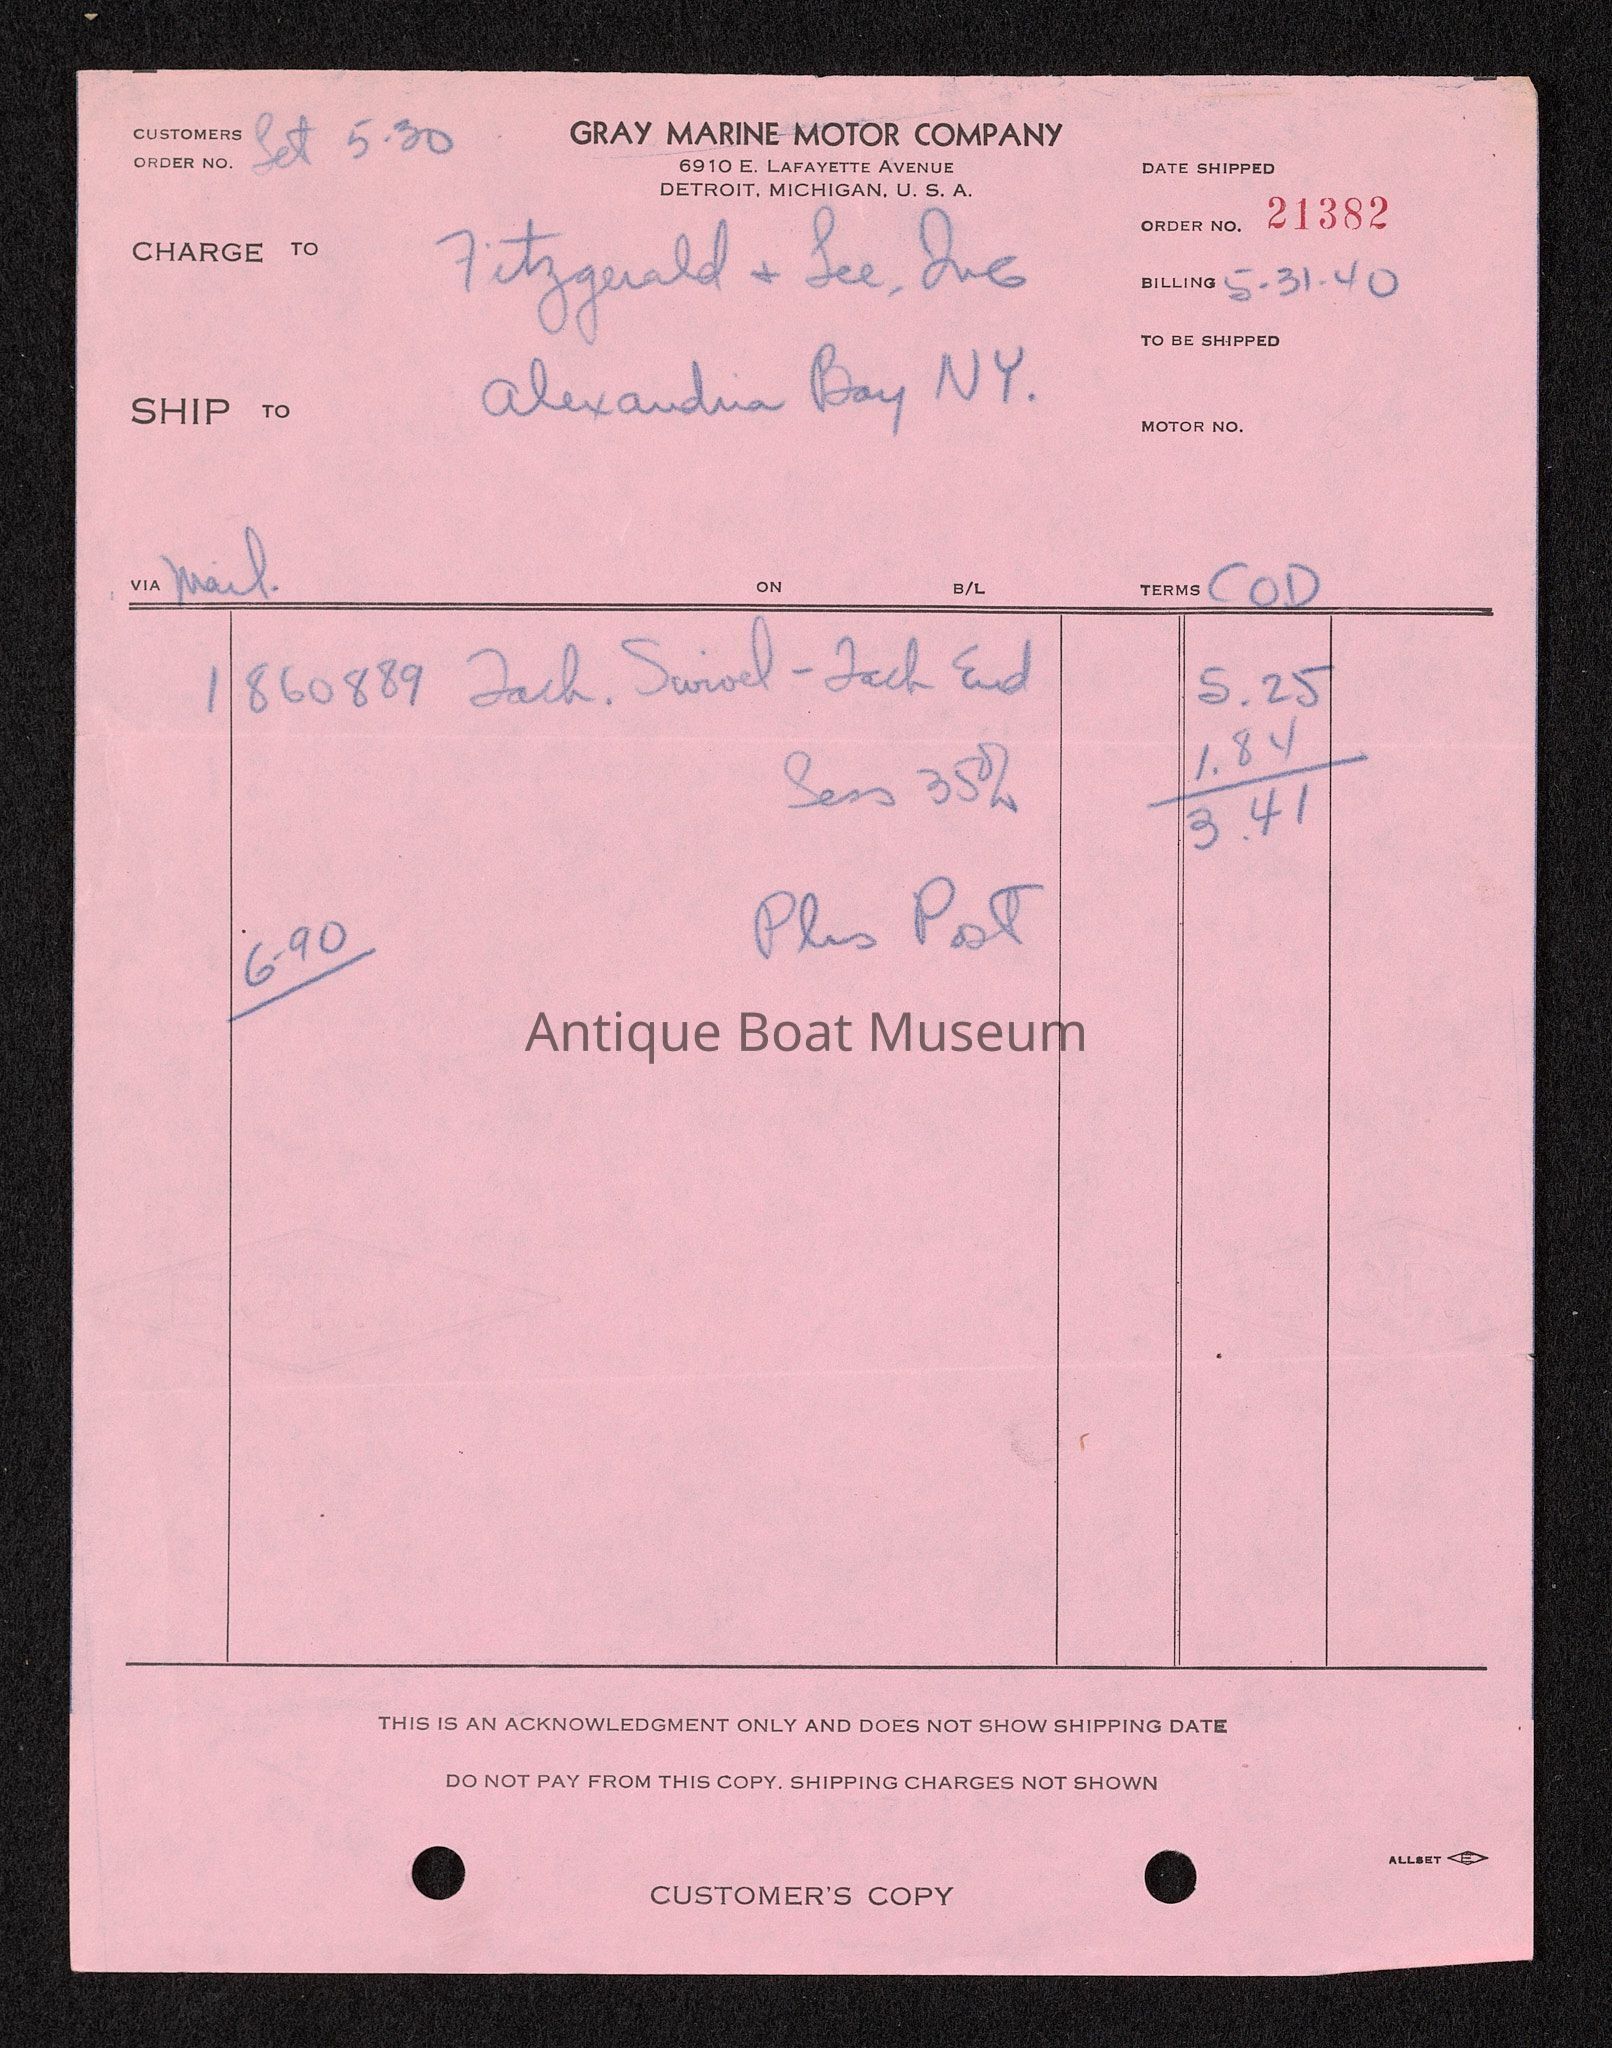 CUSTOMERS ORDER NO. Let 5-30
GRAY MARINE MOTOR COMPANY
6910 E. LAFAYETTE AVENUE
DETROIT, MICHIGAN, U. S. A.
DATE SHIPPED
ORDER NO. 21382
CHARGE TO Fitzgerald + Lee, Inc
BILLING 5-31-40
TO BE SHIPPED
SHIP TO Alexandria Bay NY.
MOTOR NO.
VIA Mail. ON B/L TERMS COD
1 860889 Tach. Swivel - Tach End 5.25
Less 35% 1.84
3.41
6-90 Plus Post
Antique Boat Museum
THIS IS AN ACKNOWLEDGMENT ONLY AND DOES NOT SHOW SHIPPING DATE
DO NOT PAY FROM THIS COPY. SHIPPING CHARGES NOT SHOWN
ALLSET E
CUSTOMER'S COPY